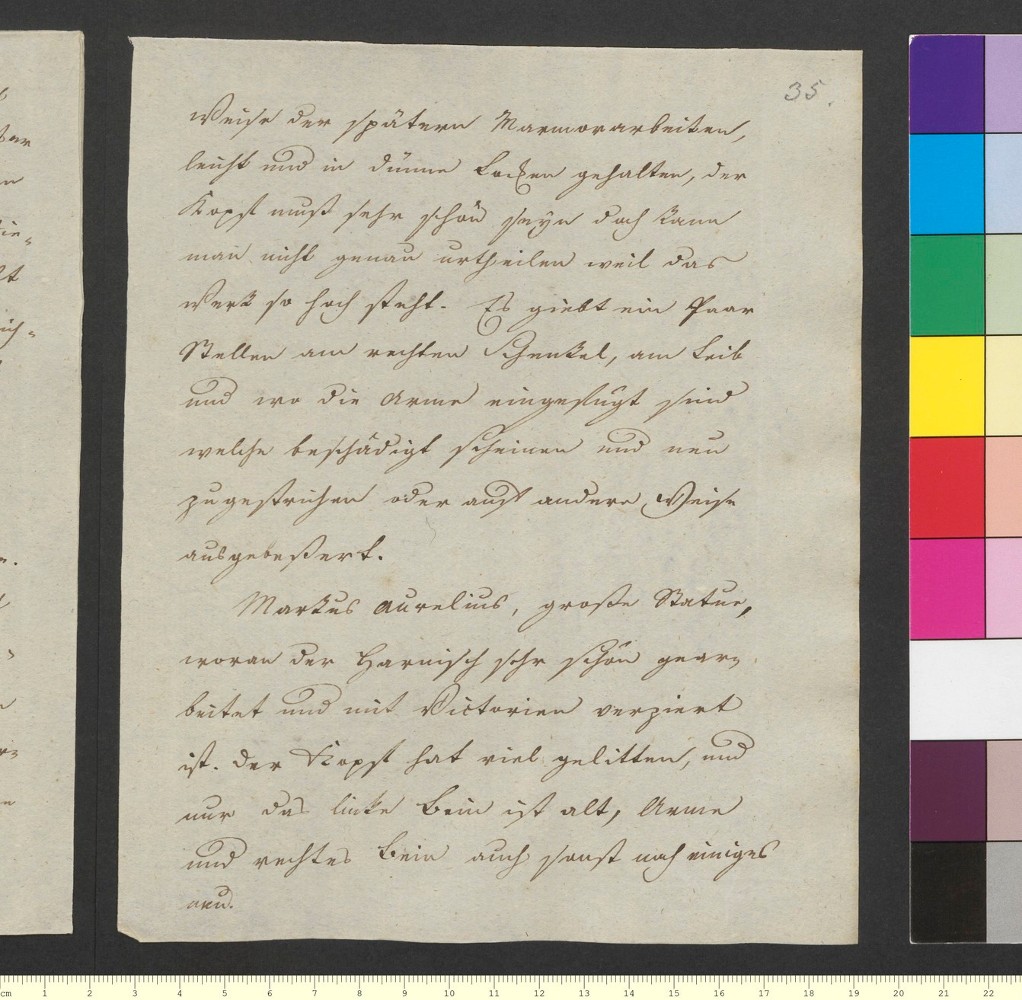 35.
Weise der spätern Marmorarbeiten,
leicht und in dünne Locken gehalten, der
Kopf muß sehr schön seyn doch kann
man nicht genau urtheilen weil das
Werk so hoch steht. Es giebt ein Paar
Stellen am rechten Schenkel, am Leib
und wo die Arme eingefügt sind
welche beschädigt scheinen und neu
zugestrichen oder auf andere Weise
ausgebeßert.
Markus Aurelius, große Statue,
woran der Harnisch sehr schön gear-
beitet und mit Victorien verziert
ist. der Kopf hat viel gelitten, und
nur das linke Bein ist alt, Arme
und rechtes Bein auch sonst noch einiges
neu.
cm 1 2 3 4 5 6 7 8 9 10 11 12 13 14 15 16 17 18 19 20 21 22